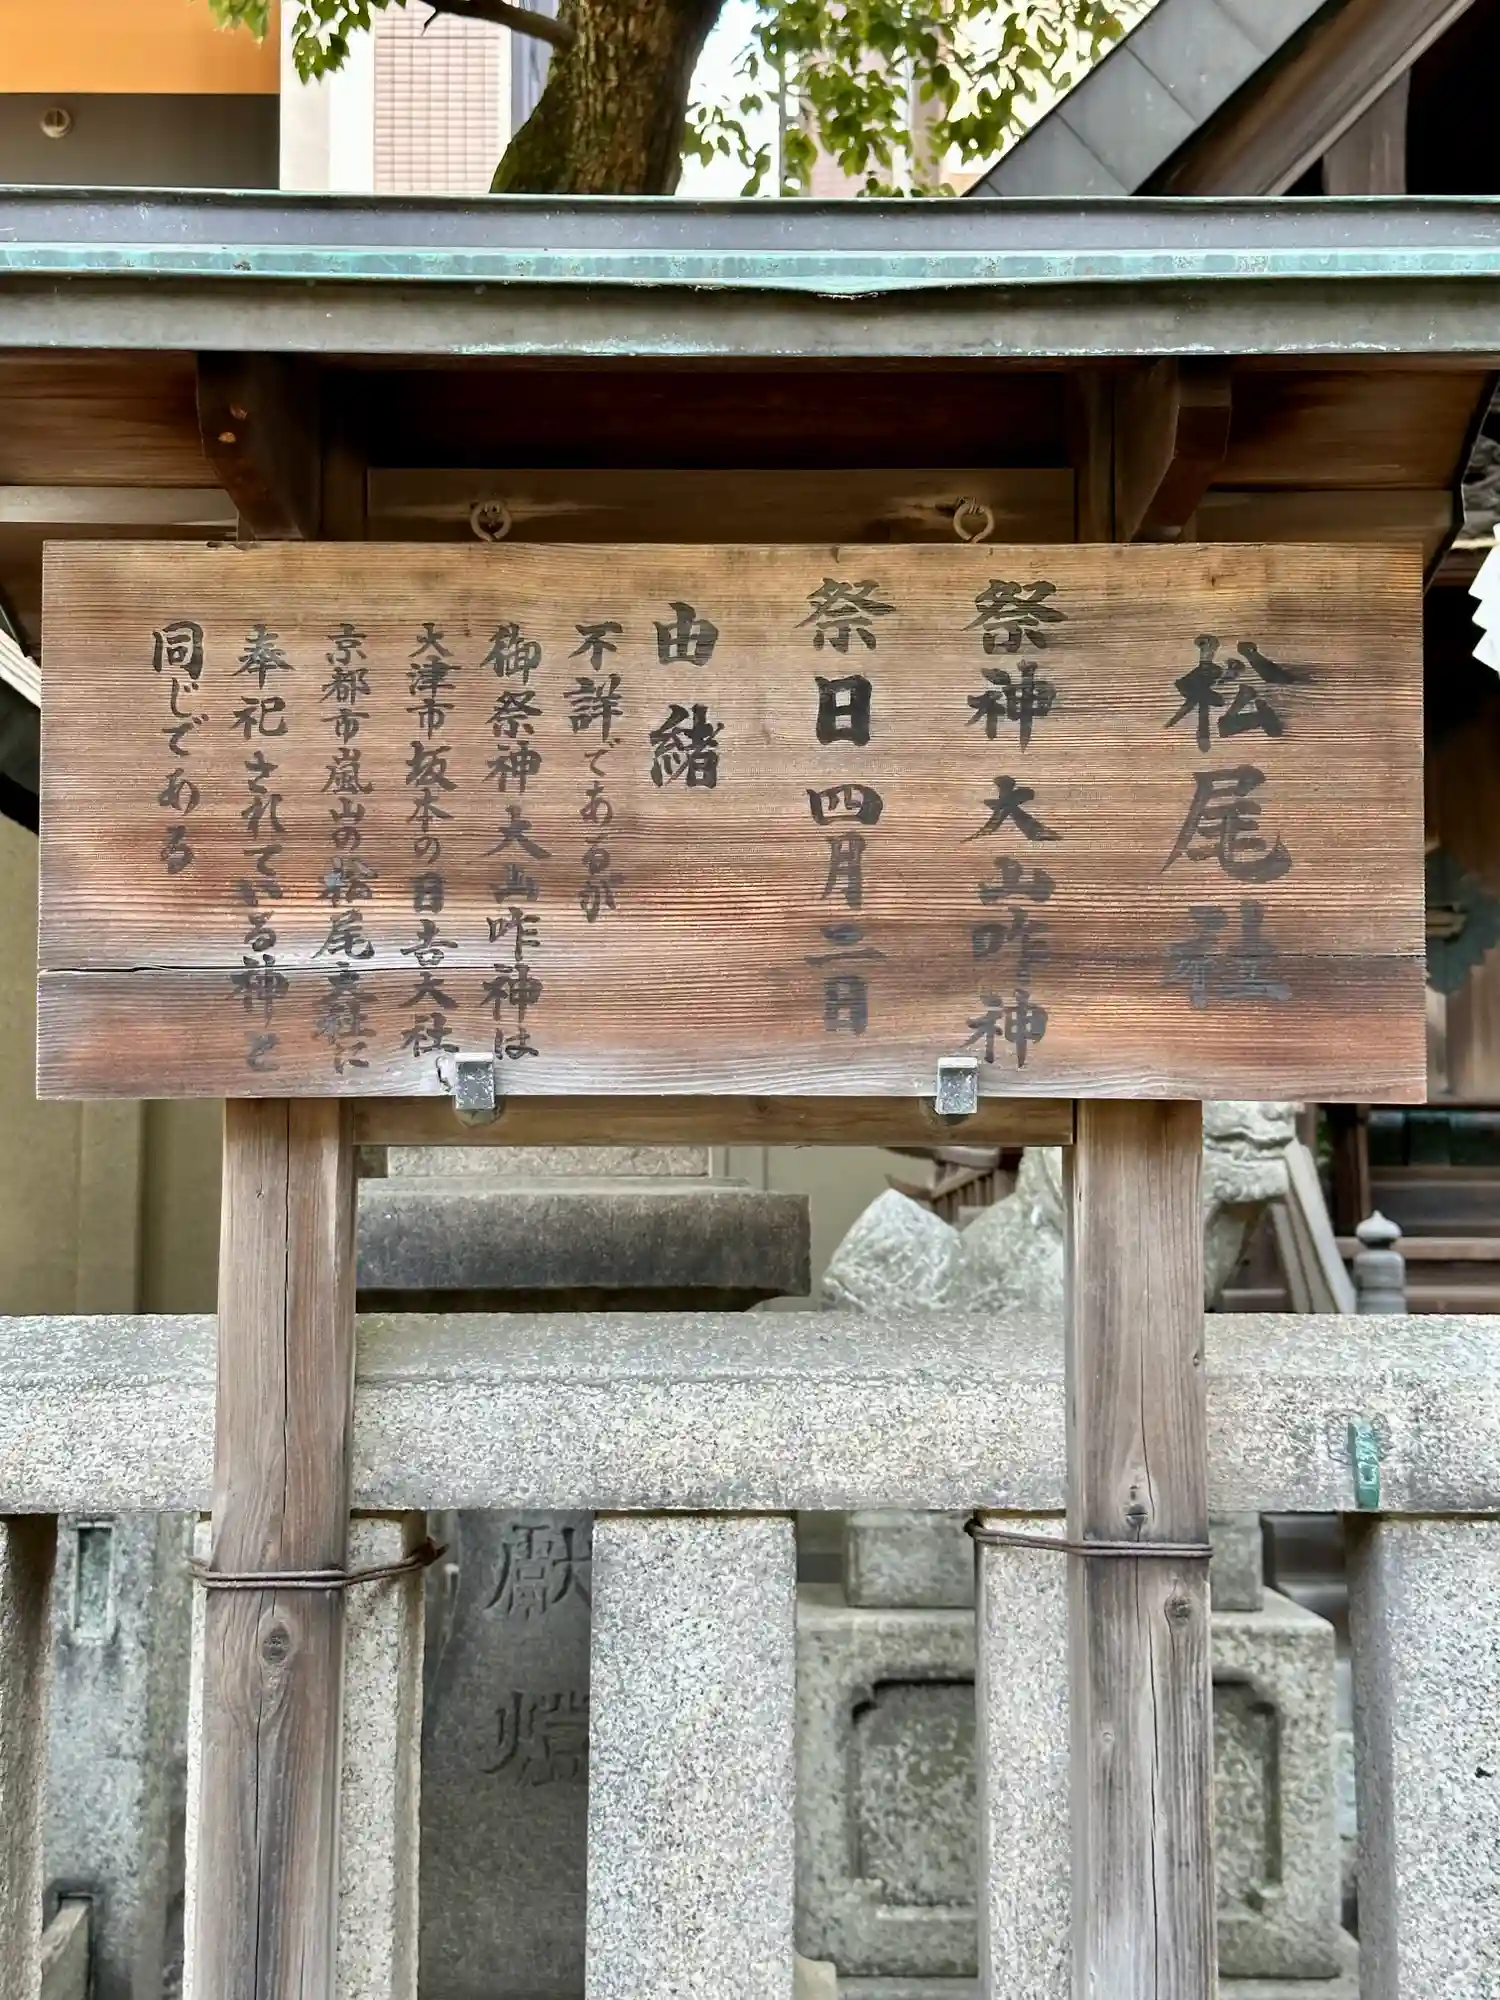 松尾社
祭神 大山咋神
祭日 四月二日
由緒
不詳であるが
御祭神大山咋神は
大津市坂本の日吉大社
京都市嵐山の松尾大社に
奉祀されている神と
同じである
献
燈